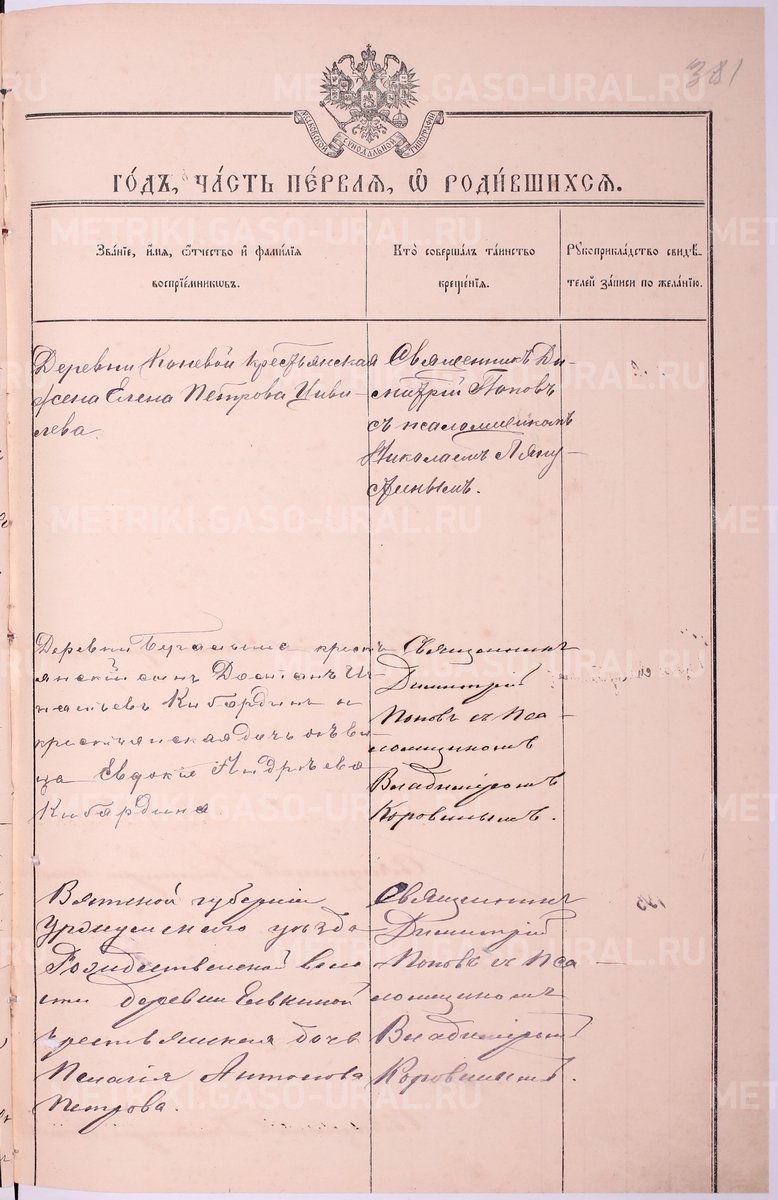 381
МОСКОВСКОЙ СѴНОДАЛЬНОЙ ТИПОГРАФІИ
ГО́ДЪ, ЧА́СТЬ ПЕ́РВАЯ, Ѽ РОДИ́ВШИХСЯ.
Зва́нїе, и́мя, ѻ҆́тчество и҆ фами́лїя
воспрїе́мниковъ.
Кто̀ соверша́лъ та́инство
креще́нїя.
Рꙋкоприкла́дство свидѣ́-
телей за́писи по жела́нїю.
Деревни Коневой крестьянская
жена Елена Петрова Циви-
лева.
Священникъ Ди-
митрій Поповъ
съ псаломщикомъ
Николаемъ Ляпу-
стинымъ.
Деревни Бугалыша кресть
янскій сынъ
натьевъ Кибардинъ и
крестьянская дочь дѣви-
ца Евдокія Андрѣева
Кибардина.
Священникъ
Димитрій
Поповъ съ Пса-
ломщикомъ
Владиміромъ
Коровинымъ.
Вятской губерніи
Уржумскаго уѣзда
Рождественской воло
сти деревни Елькиной
крестьянская дочь
Пелагія Антонова
Петрова.
Священникъ
Димитрій
Поповъ съ Пса-
ломщикомъ
Владиміромъ
Коровинымъ.
METRIKI.GASO-URAL.RU